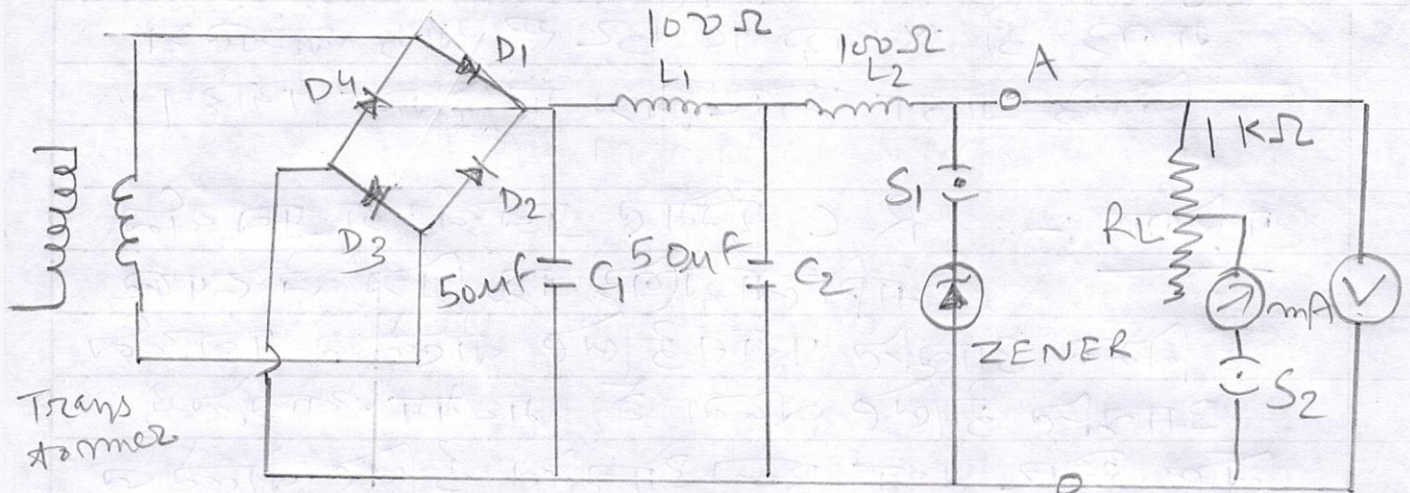 100Ω
100Ω
L1
L2
A
D1
D4
D2
D3
1KΩ
S1
RL
50μf
C1
50μf
C2
mA
V
ZENER
S2
Trans
former